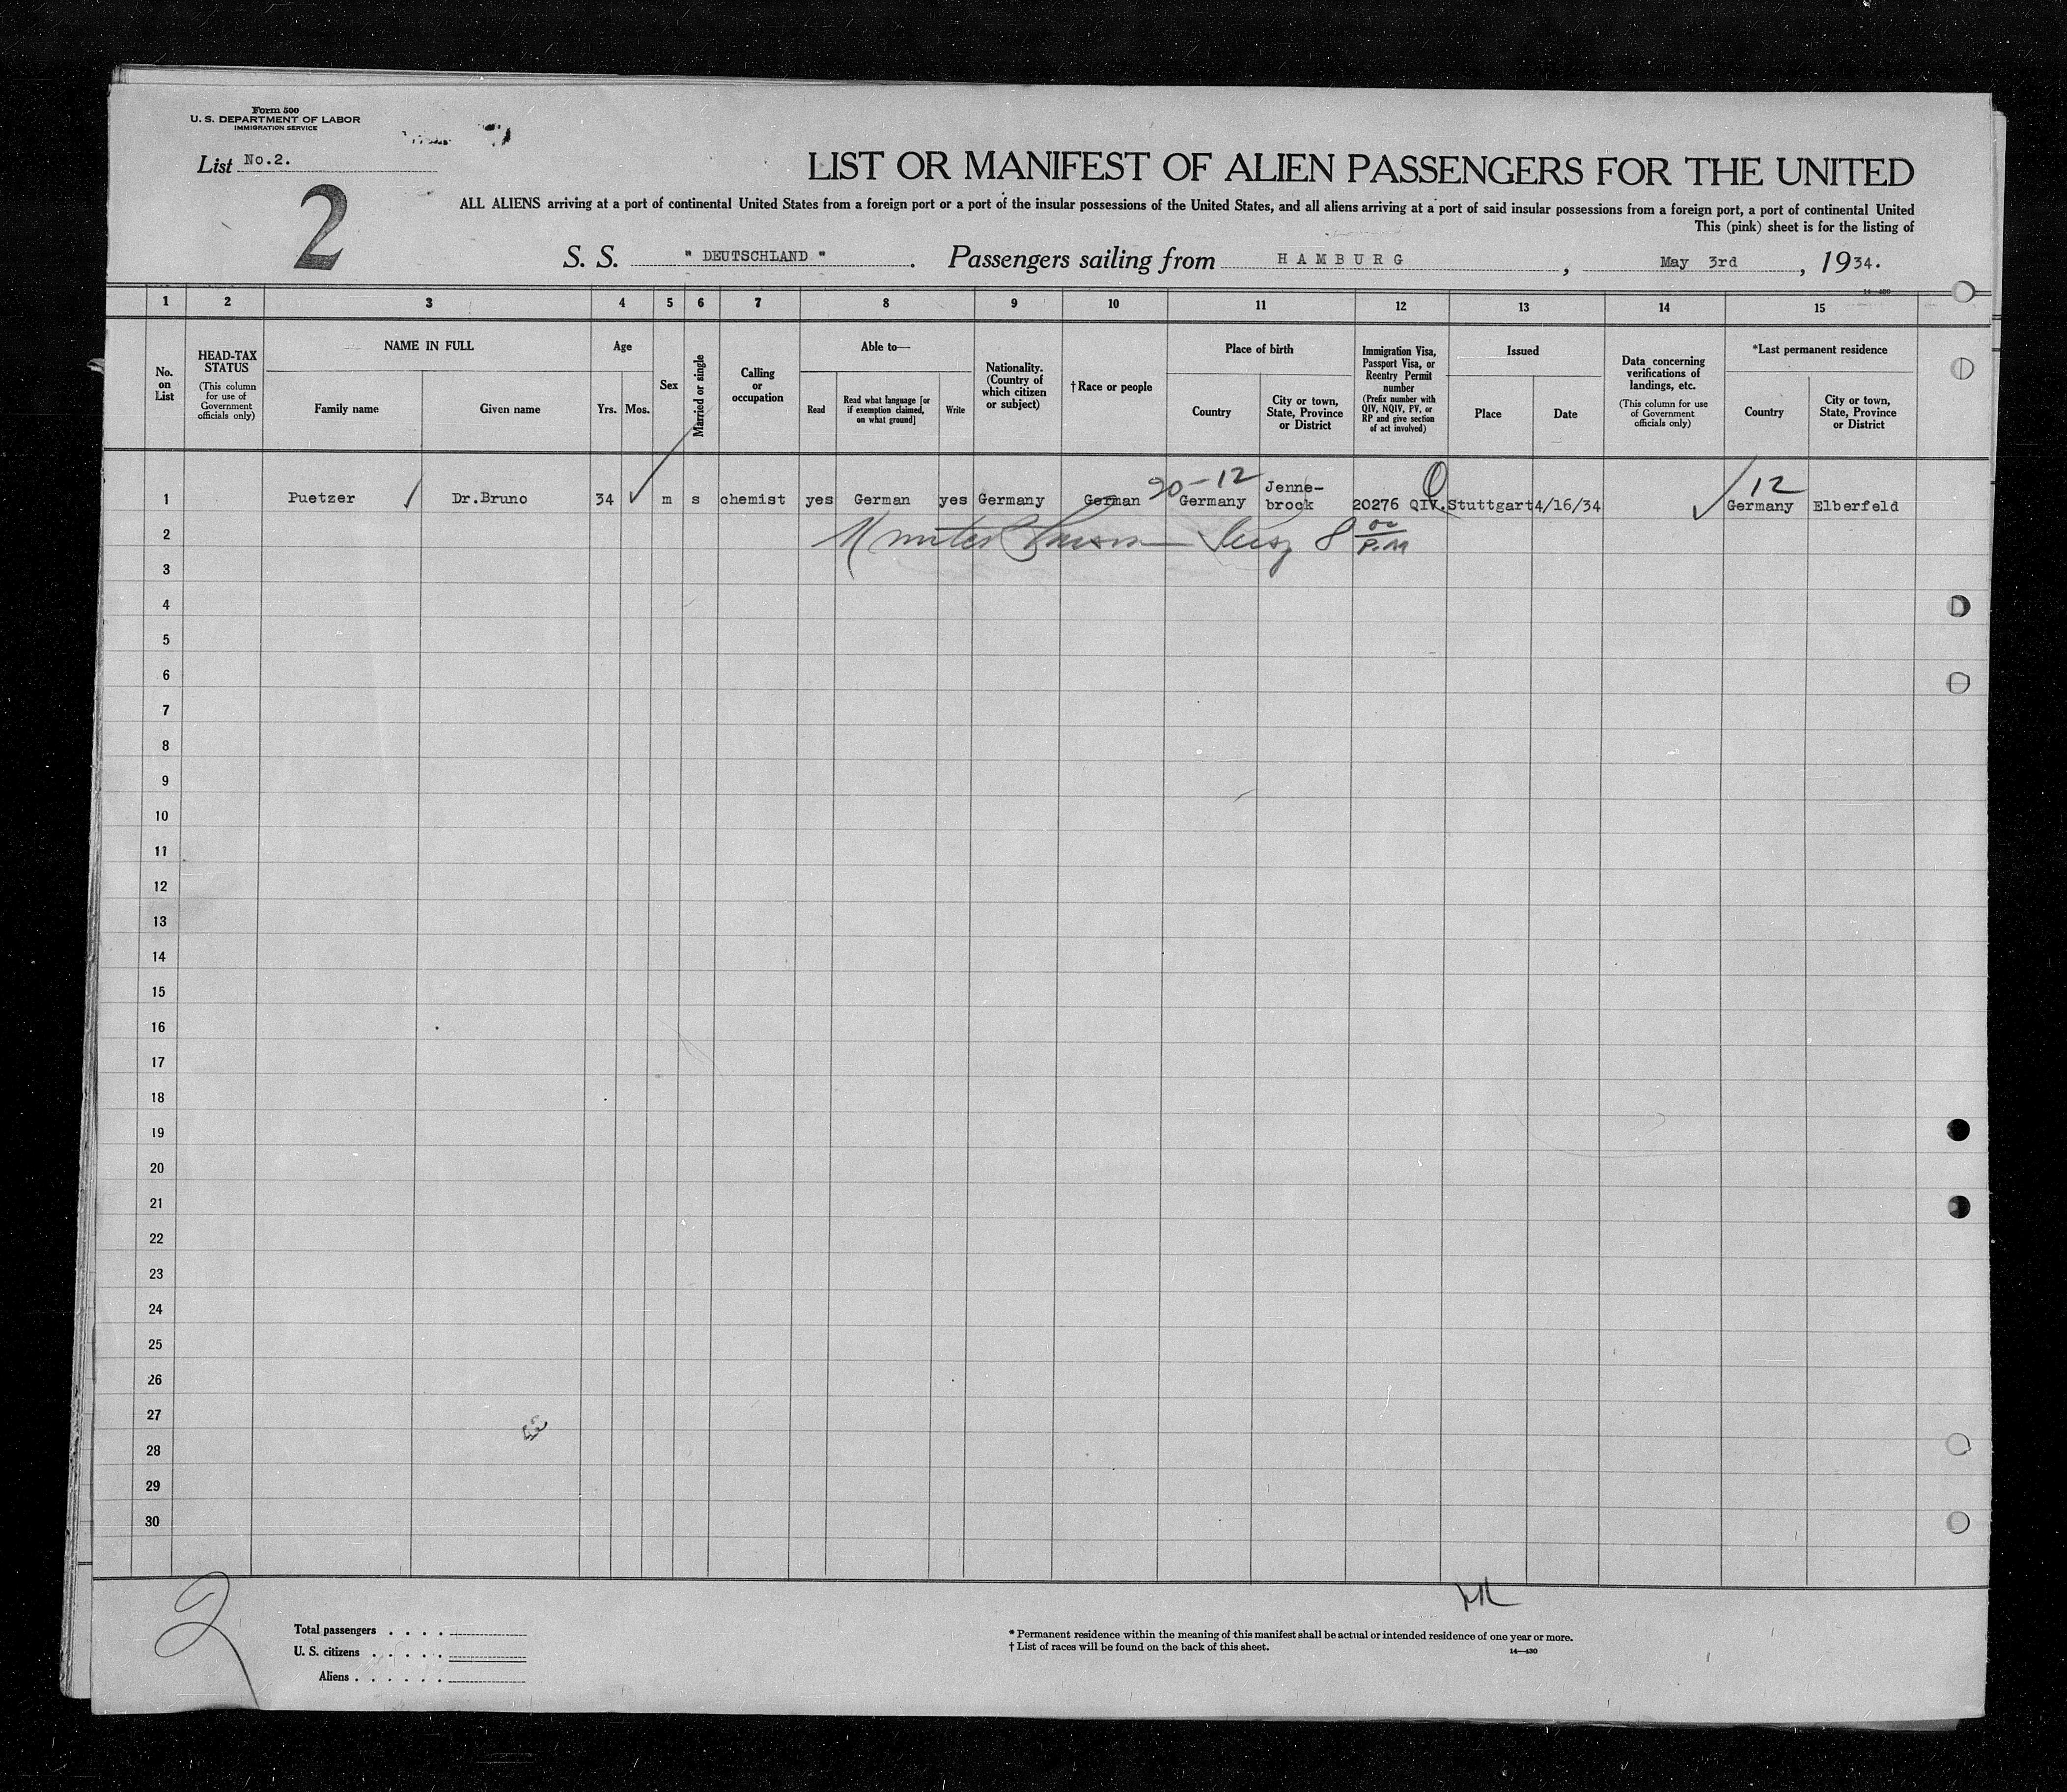 Form 500
U. S. DEPARTMENT OF LABOR
IMMIGRATION SERVICE
List No.2.
2
LIST OR MANIFEST OF ALIEN PASSENGERS FOR THE UNITED
ALL ALIENS arriving at a port of continental United States from a foreign port or a port of the insular possessions of the United States, and all aliens arriving at a port of said insular possessions from a foreign port, a port of continental United
This (pink) sheet is for the listing of
S. S. " DEUTSCHLAND ". Passengers sailing from HAMBURG, May 3rd, 1934.
1 2 3 4 5 6 7 8 9 10 11 12 13 14 15
No. on List
HEAD-TAX STATUS
(This column for use of Government officials only)
NAME IN FULL
Family name
Given name
Age
Yrs. Mos.
Sex
Married or single
Calling or occupation
Able to—
Read
Read what language [or if exemption claimed, on what ground]
Write
Nationality. (Country of which citizen or subject)
†Race or people
Place of birth
Country
City or town, State, Province or District
Immigration Visa, Passport Visa, or Reentry Permit number
(Prefix number with QIV, NQIV, PV, or RP and give section of act involved)
Issued
Place
Date
Data concerning verifications of landings, etc.
(This column for use of Government officials only)
*Last permanent residence
Country
City or town, State, Province or District
20-12
12
1 Puetzer Dr.Bruno 34 m s chemist yes German yes Germany German Germany Jenne-brock 20276 QIV. Stuttgart 4/16/34 Germany Elberfeld
2 8 00 P.M
3
4
5
6
7
8
9
10
11
12
13
14
15
16
17
18
19
20
21
22
23
24
25
26
27
28
29
30
2
Total passengers . . . .
U. S. citizens . . . . .
Aliens . . . . . .
* Permanent residence within the meaning of this manifest shall be actual or intended residence of one year or more.
† List of races will be found on the back of this sheet.
14—430